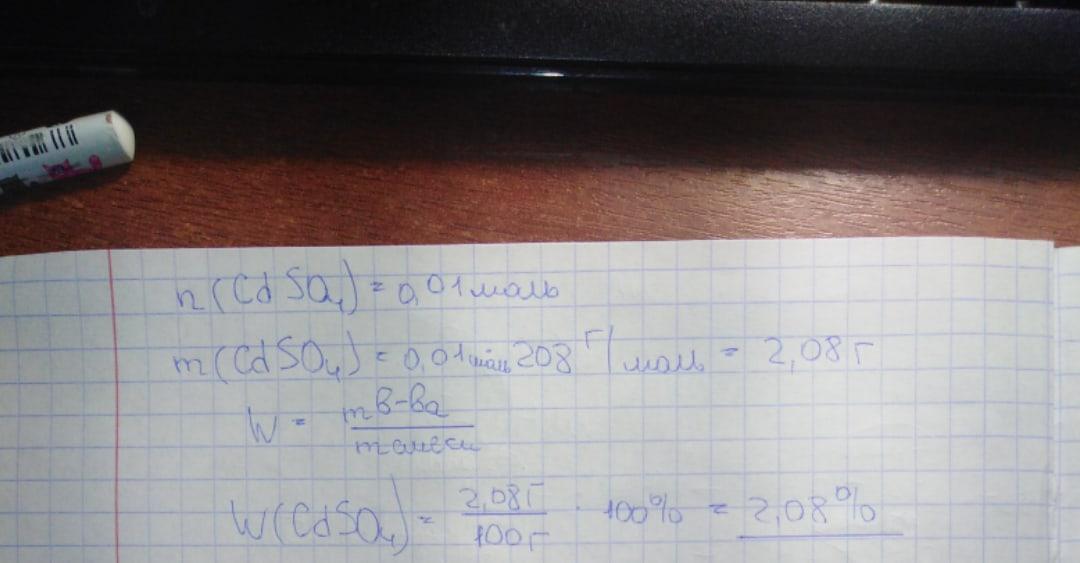 n(CdSO₄) = 0,01 моль
m(CdSO₄) = 0,01 моль 208 г/моль = 2,08 г
W = m в-ва / m смеси
W(CdSO₄) = 2,08 г / 100 г · 100% = 2,08%